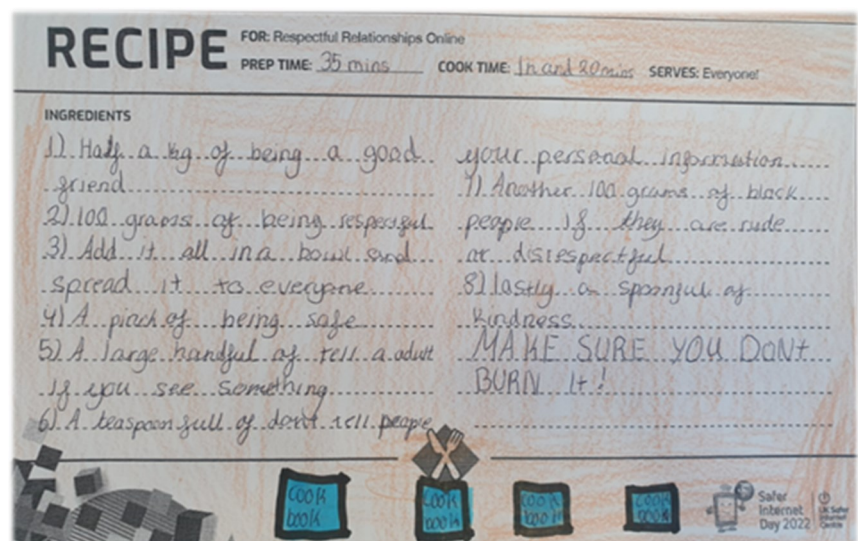 RECIPE
FOR: Respectful Relationships Online
PREP TIME: 35 mins COOK TIME: 1h and 20 mins SERVES: Everyone!
INGREDIENTS
1) Half a kg of being a good
friend
2) 100 grams of being respectful
3) Add it all in a bowl and
spread it to everyone
4) A pinch of being safe
5) A large handful of tell a adult
if you see something
6) A teaspoon full of don't tell people
your personal information
7) Another 100 grams of block
people if they are rude
or disrespectful
8) lastly a spoonful of
kindness
MAKE SURE YOU DONt
BURN It!
cook
book
cook
book
cook
book
cook
book
Safer
Internet
Day 2022
UK Safer
Internet
Centre